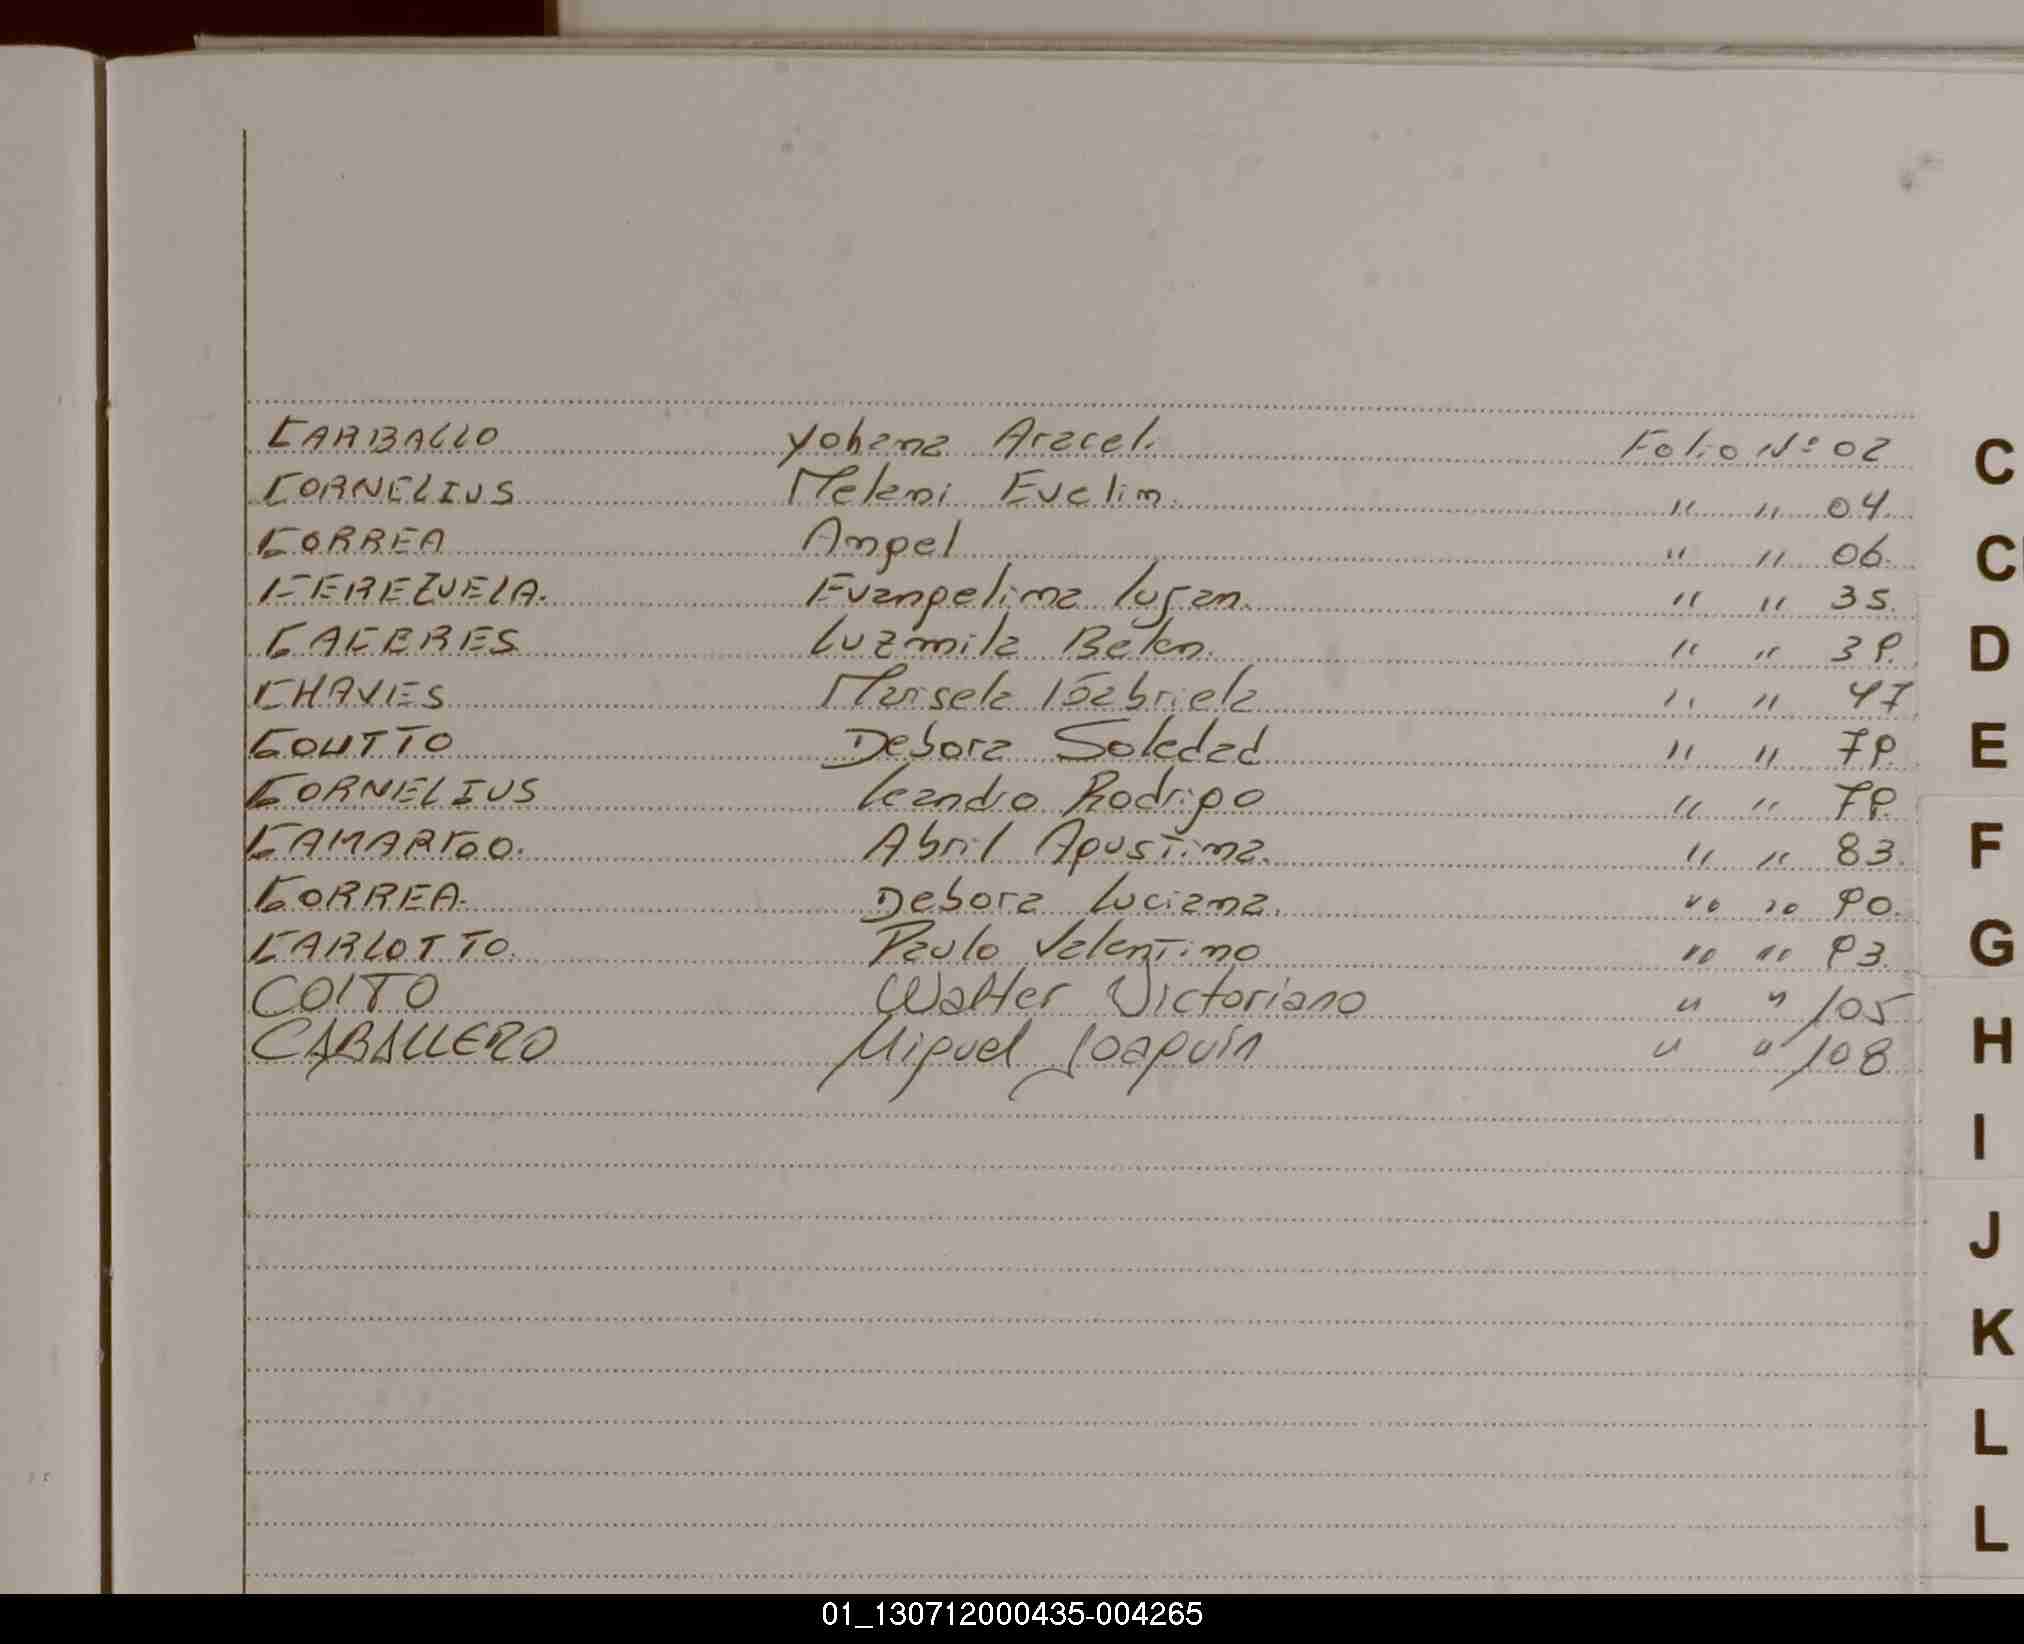 CARBALLO Yohana Araceli Folio Nº 02
CORNELIUS Melani Evelin. " " 04
CORREA Angel " " 06
CEREZUELA. Evangelina Lujan. " " 35
CACERES Luzmila Belen. " " 39.
CHAVES Marisela Gabriela " " 47
COUTTO Debora Soledad " " 79.
CORNELIUS Leandro Rodrigo " " 79.
Abril Agustina. " " 83.
CORREA. Debora Luciana. " " 90.
CARLOTTO. Paulo Valentino " " 93.
COITO Walter Victoriano " " 105
CABALLERO Miguel Joaquín " " 108
C
D
E
F
G
H
I
J
K
L
L
01_130712000435-004265